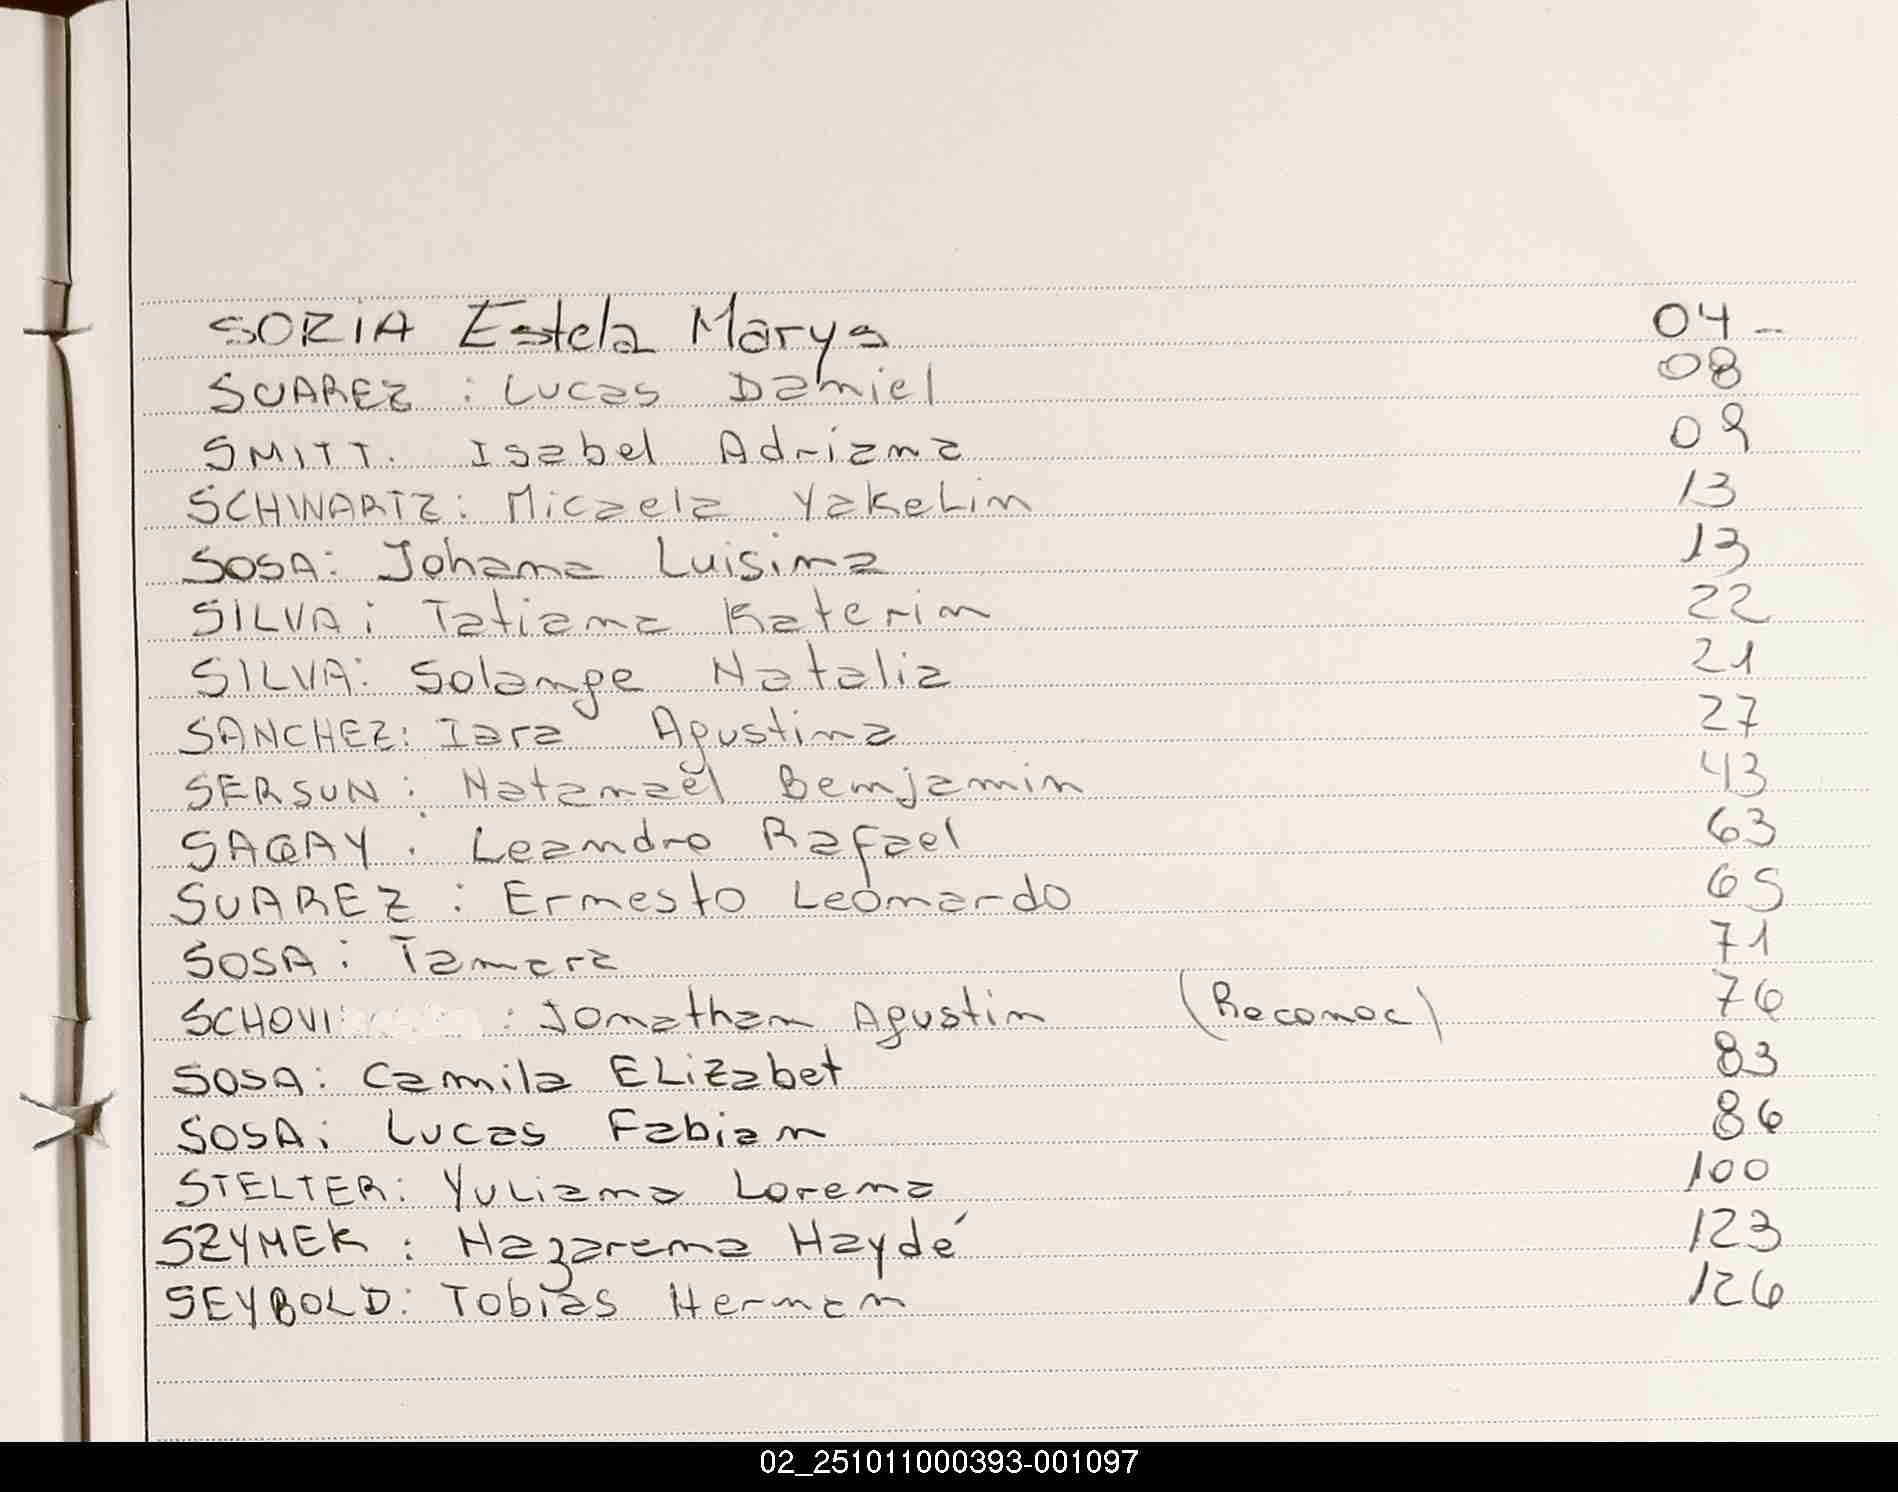 SORIA Estela Marys 04 -
SUAREZ : Lucas Daniel 08
SMITT. Isabel Adriana 09
SCHWARTZ: Micaela Yakelin 13
SOSA: Johana Luisina 13
SILVA: Tatiana Katerin 22
SILVA: Solange Natalia 21
SANCHEZ: Iara Agustina 27
SERSUN: Natanaël Benjamin 43
SAQAY: Leandro Rafael 63
SUAREZ : Ernesto Leonardo 65
SOSA: Tamara 71
SCHOVI : Jonathan Agustin (Reconoc) 76
SOSA: Camila ELizabet 83
SOSA: Lucas Fabian 86
STELTER: Yuliana Lorena 100
SZYMEK : Nazarena Haydé 123
SEYBOLD: Tobias Hernan 126
02_251011000393-001097